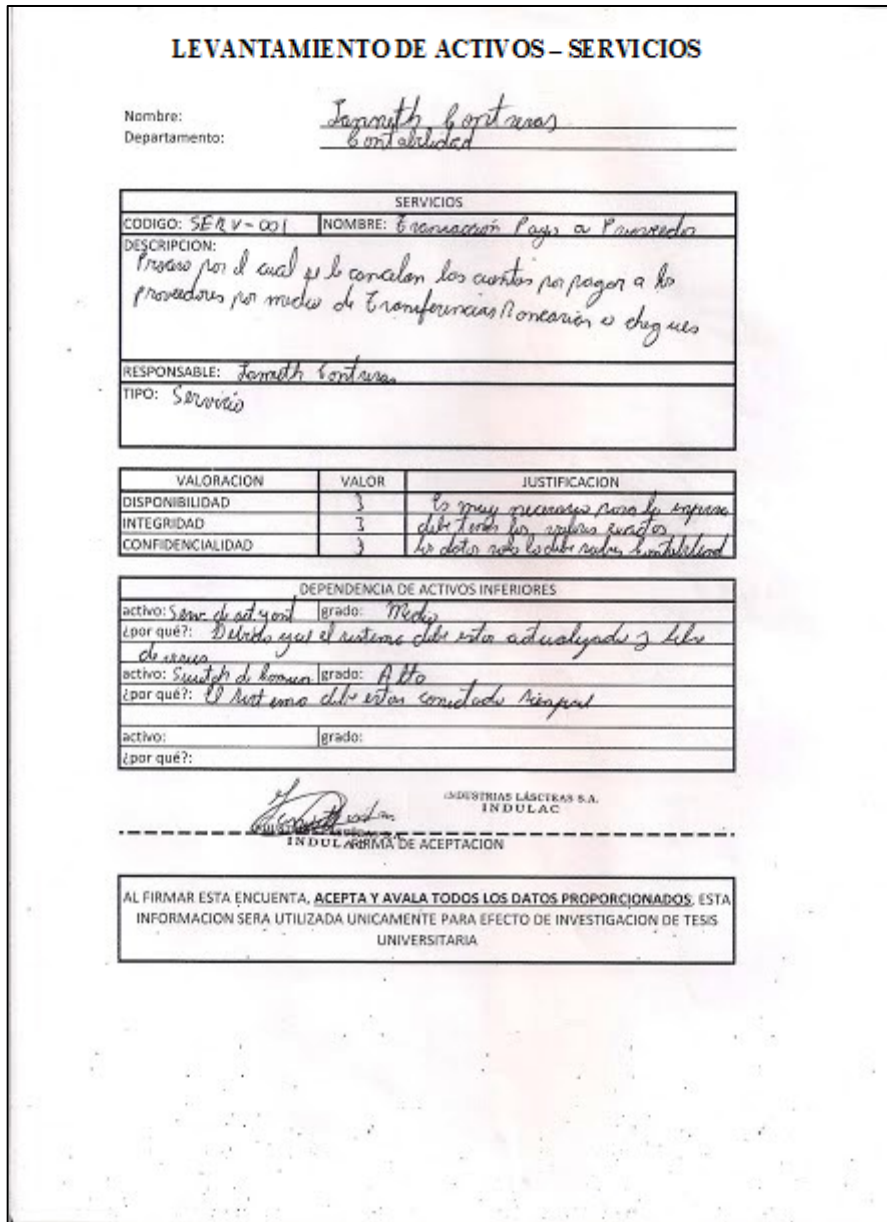 LEVANTAMIENTO DE ACTIVOS – SERVICIOS
Nombre: Janneth Contreras
Departamento: Contabilidad
SERVICIOS
CODIGO: SERV-001 NOMBRE: Transacción Pago a Proveedor
DESCRIPCION:
Proceso por el cual se le cancelan las cuentas por pagar a los
proveedores por medio de Transferencias Bancarias o cheques
RESPONSABLE: Janneth Contreras
TIPO: Servicio
VALORACION VALOR JUSTIFICACION
DISPONIBILIDAD 3 Es muy necesario para la empresa
INTEGRIDAD 3 debe tener los valores exactos
CONFIDENCIALIDAD 3 los datos solo los debe saber Contabilidad
DEPENDENCIA DE ACTIVOS INFERIORES
activo: Serv. de act y ant grado: Medio
¿por qué?: Debido que el sistema debe estar actualizado y libre
de virus
activo: Switch de comun grado: Alto
¿por qué?: El sistema debe estar conectado siempre
activo: grado:
¿por qué?:
INDUSTRIAS LÁCTEAS S.A.
INDULAC
INDULAC
FIRMA DE ACEPTACION
AL FIRMAR ESTA ENCUENTA, ACEPTA Y AVALA TODOS LOS DATOS PROPORCIONADOS, ESTA
INFORMACION SERA UTILIZADA UNICAMENTE PARA EFECTO DE INVESTIGACION DE TESIS
UNIVERSITARIA